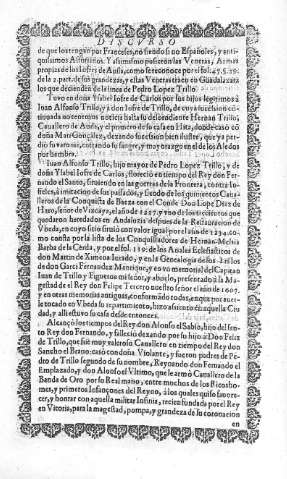 DISCVRSO
de que los tengan por Franceses, no siendo sino Españoles, y anti-
quissimos Asturianos. Y assimismo pusieron las Veneras, Armas
propias de los Iofres de Ausis, como se reconoce por el fol. 47. S. 20.
de la 2. part. de sus grandezas, y ellas Veneras traen en Guadalaxara
los que decienden de la linea de Pedro Lopez Trillo.
Tuvo en doña Ysabel Iofre de Carlos por sus hijos legitimos à
Ioan Alfonso Trillo, y a don Iofre de Trillo, de cuya sucession con-
tinuada no tenemos noticia hasta su decendiente Hernan Trillo,
Cavallero de Ausis, y el primero de su casa en Lita, donde casò cõ
doña Mari Gonçalez, dexando sucession bien ilustre, que ya per-
dio su varonia, entrando su sangre, y mayorazgo en el de los Aledos
por hembra.
Ioan Alfonso Trillo, hijo mayor de Pedro Lopez Trillo, y de
doña Ysabel Iofre de Carlos, floreciò en tiempo del Rey don Fer-
nando el Santo, sirviendo en las guerras de la Frontera, contra In-
fieles, à imitacion de sus passados, y siendo de los quinientos Cavalle-
ros de la Conquista de Baeza con el Conde Don Lope Diaz de
Haro, señor de Vizcaya, el año de 1227. y vno de los trecientos que
quedaron heredados en Andaluzia despues de la Restauracion de
Vbeda, en cuyo sitio sirviò con valor igual por el año de 1234. co-
mo consta por la lista de los Conquistadores de Hernan Mexia
Barba de la Cerda, y por el fol. 120. de los Anales Eclesiasticos de
don Martin de Ximena Iurado, y en la Genealogia destos Trillos
de don Garci Fernandez Manrique, y en vn memorial del Capitan
Ioan de Trillo y Figueroa mi señor, y abuelo, presentado à la Ma-
gestad de el Rey don Felipe Tercero nuestro señor el año de 1607.
y en otras memorias antiguas, conformando todos, en que por aver-
le tocado en Vbeda repartimiento, hizo assiento en aquella Ciu-
dad, y alli estuvo su casa desde entonces.
Alcançò los tiempos del Rey don Alonso el Sabio, hijo del san-
to Rey don Fernando, y falleciò dexando por su hijo à Don Felix
de Trillo, que fue muy valeroso Cavallero en tiempo del Rey don
Sancho el Bravo: casò con doña Violante, y fueron padres de Pe-
dro de Trillo segundo de su nombre, Reynando don Fernando el
Emplazado, y don Alonso el Vltimo, que le armò Cavallero de la
Banda de Oro por su Real mano, entre muchos de los Ricoshom-
bres, y primeros Infançones del Reyno, à los quales quiso favore-
cer, y honrar con aquella militar Insinia, recien fundada por el Rey
en Vitoria, para la magestad, pompa, y grandeza de su coronacion
en